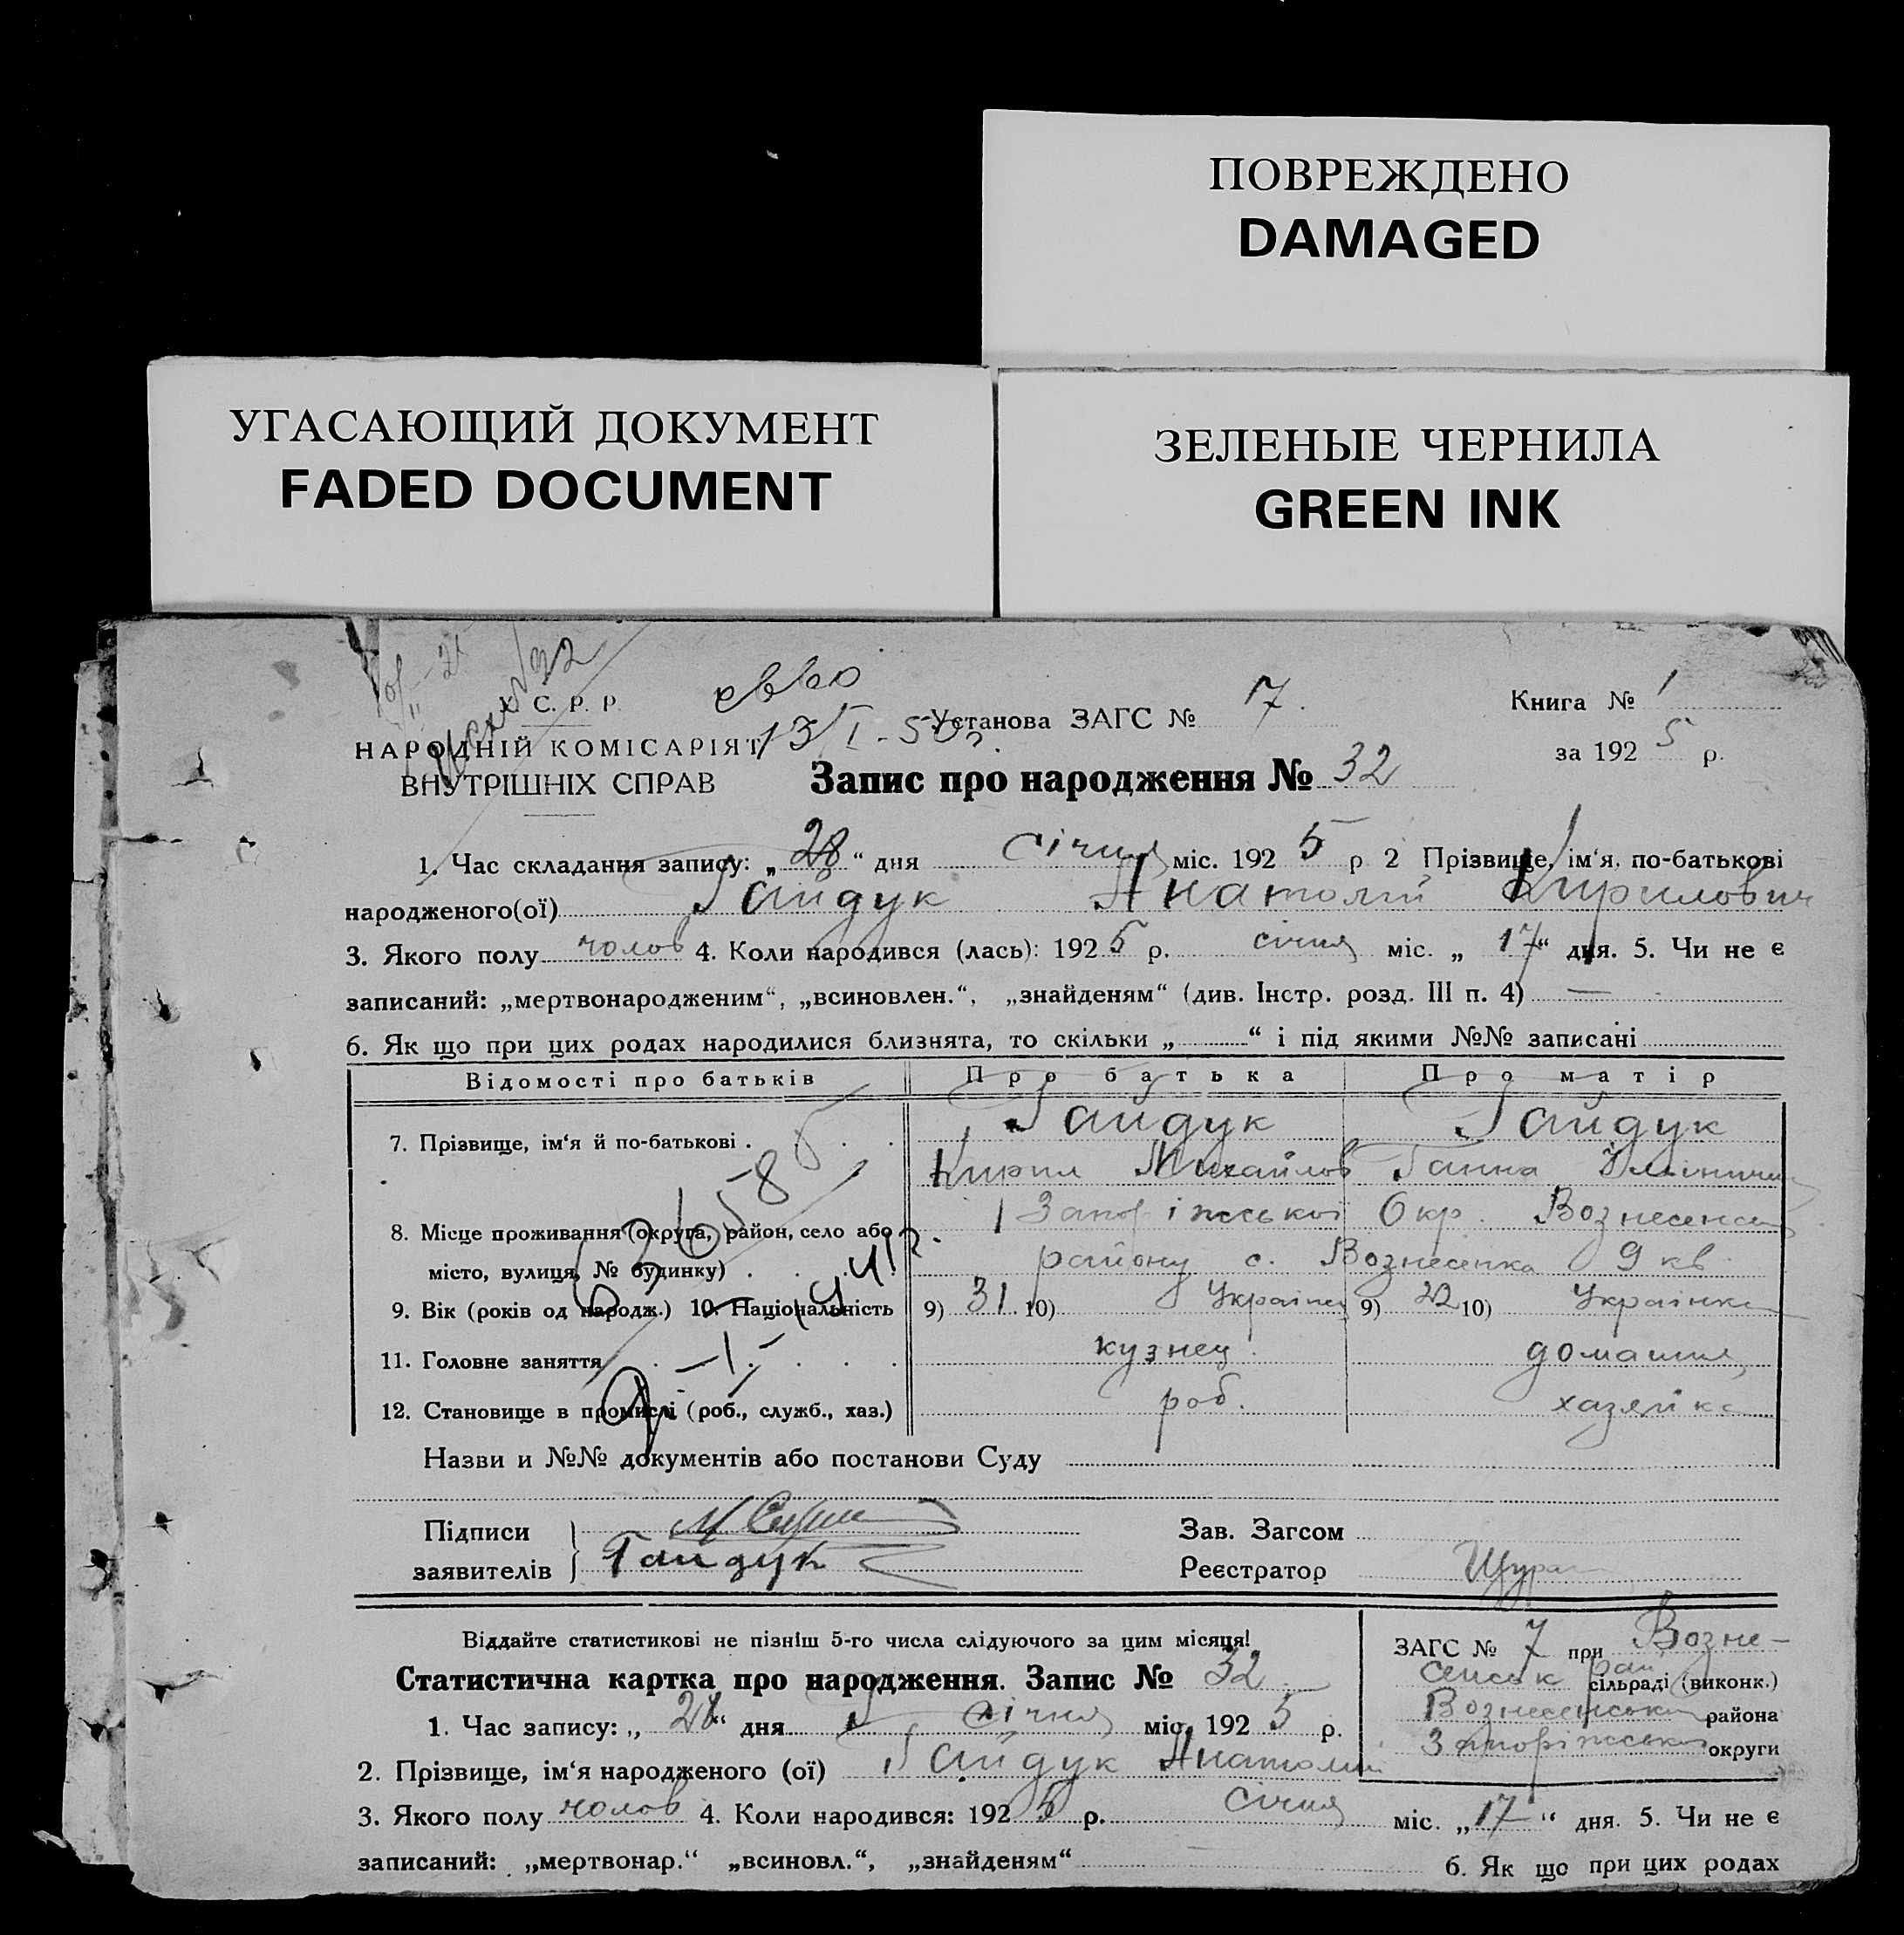 ПОВРЕЖДЕНО
DAMAGED
УГАСАЮЩИЙ ДОКУМЕНТ
FADED DOCUMENT
ЗЕЛЕНЫЕ ЧЕРНИЛА
GREEN INK
У. С. Р. Р.
НАРОДНІЙ КОМІСАРІЯТ
ВНУТРІШНІХ СПРАВ
13/I - 50 г.
Установа ЗАГС № 17.
Книга № 1
за 1925 р.
Запис про народження № 32
1. Час складання запису: „28“ дня січня міс. 1925 р 2 Прізвище, ім‘я, по-батькові
народженого(ої) Гайдук Анатолій Кирилович
3. Якого полу чолов 4. Коли народився (лась): 1925 р. січня міс. „17“ дня. 5. Чи не є
записаний: „мертвонародженим“, „всиновлен.“, „знайденям“ (див. Інстр. розд. III п. 4) —
6. Як що при цих родах народилися близнята, то скільки „ “ і під якими №№ записані
Відомості про батьків Про батька Про матір
7. Прізвище, ім‘я й по-батькові . Гайдук Гайдук
Кирил Михайлов Ганна
8. Місце проживання (округа, район, село або Запоріжської Окр. Вознесенськ
місто, вулиця, № будинку) . району с. Вознесенка 9 кв
9. Вік (років од народж.) 10. Національність 9) 31 10) Українец 9) 22 10) Українка
11. Головне заняття кузнец домашня
12. Становище в промислі (роб., служб., хаз.) роб. хазяйка
Назви и №№ документів або постанови Суду
Підписи
заявителів Гайдук
Зав. Загсом
Реєстратор Щура
Віддайте статистикові не пізніш 5-го числа слідуючого за цим місяця!
Статистична картка про народження. Запис № 32
ЗАГС № 7 при Возне-
сенськ рай. сільраді (виконк.)
Вознесенськ района
Запоріжськ округи
1. Час запису: „28“ дня січня міс. 1925 р.
2. Прізвище, ім‘я народженого (ої) Гайдук Анатолій
3. Якого полу чолов 4. Коли народився: 1925 р. січня міс. „17“ дня. 5. Чи не є
записаний: „мертвонар.“ „всиновл.“, „знайденям“ 6. Як що при цих родах